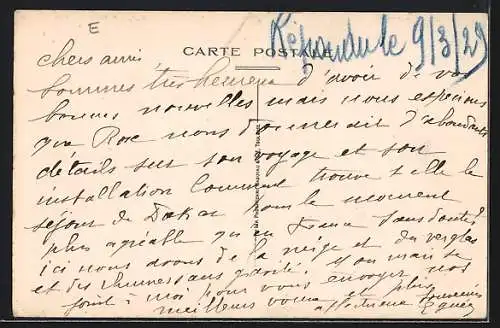 E
CARTE POSTALE
Répondu le 9/3/29
chers amis
sommes très heureux d'avoir de vos
bonnes nouvelles mais nous espérions
que Rose nous donnerait d'abondants
détails sur son voyage et son
installation Comment trouve t elle le
séjour de Dakar pour le moment
plus agréable qu'en France sans doute?
ici nous avons de la neige et du verglas
et des rhumes sans gravité. Ma mère se
joint à moi pour vous envoyer nos
meilleurs voeux et plus
affectueux souvenirs